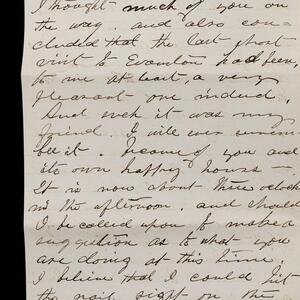 I thought much of you on
the way. and also con-
cluded that the last short
visit to Evanston had been,
to me at least, a very
pleasant one indeed.
And such it was my
friend. I will ever remem
ber it. Because of you and
its own happy hours —
It is now about three oclock
in the afternoon. and should
I be called upon to make a
suggestion as to what you
are doing at this time.
I believe that I could hit
the nail right on the